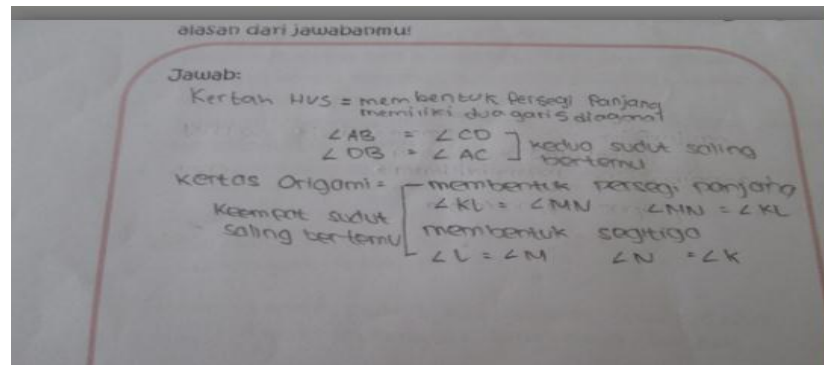 alasan dari jawabanmu!
Jawab:
Kertah HVS = membentuk Persegi Panjang
memiliki dua garis diagonal
∠AB = ∠CD
∠DB = ∠AC ] kedua sudut saling
bertemu
Kertas Origami = membentuk persegi panjang
∠KL = ∠MN ∠MN = ∠KL
Keempat sudut
saling bertemu membentuk segitiga
∠L = ∠M ∠N = ∠K